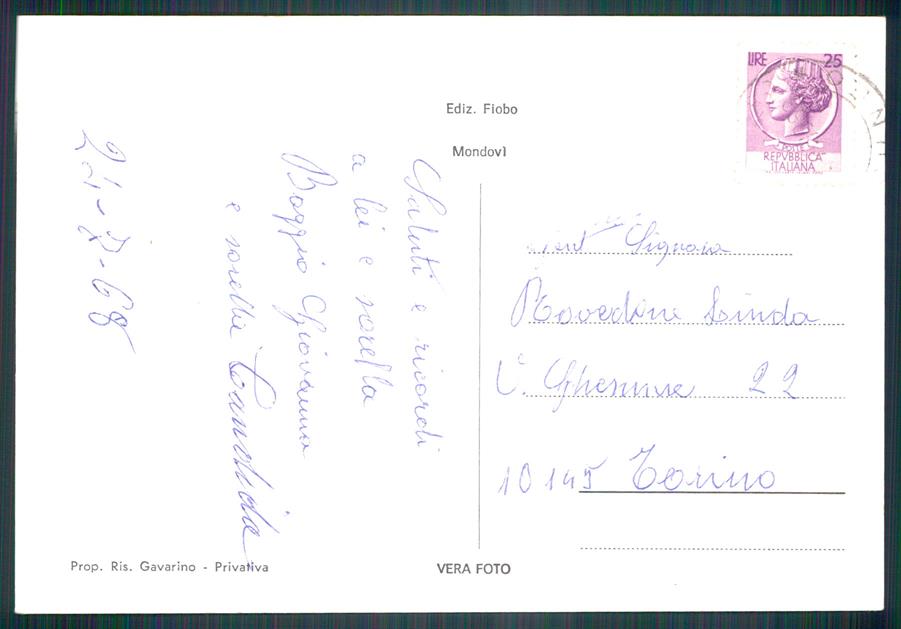 Ediz. Fiobo
Mondovì
LIRE 25
POSTE
REPVBBLICA
ITALIANA
Saluti e ricordi
a lei e sorella
Boggio Giovanna
e sorella Candida
Gent Signora
Linda
22
10145 Torino
Prop. Ris. Gavarino - Privativa
VERA FOTO